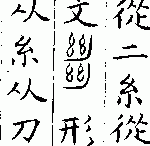 從二糸從
文形
从糸从刀